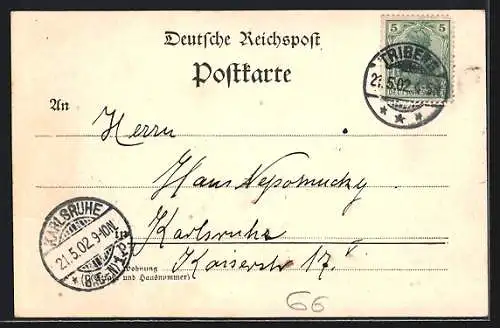 Deutsche Reichspost
Postkarte
5 5
TRIBERG
21.5.02
An
Herrn
Hans Nepomucky
KARLSRUHE
21.5.02 9-10N
in Karlsruhe
Wohnung
Kaiserstr 17.
und Hausnummer)
66